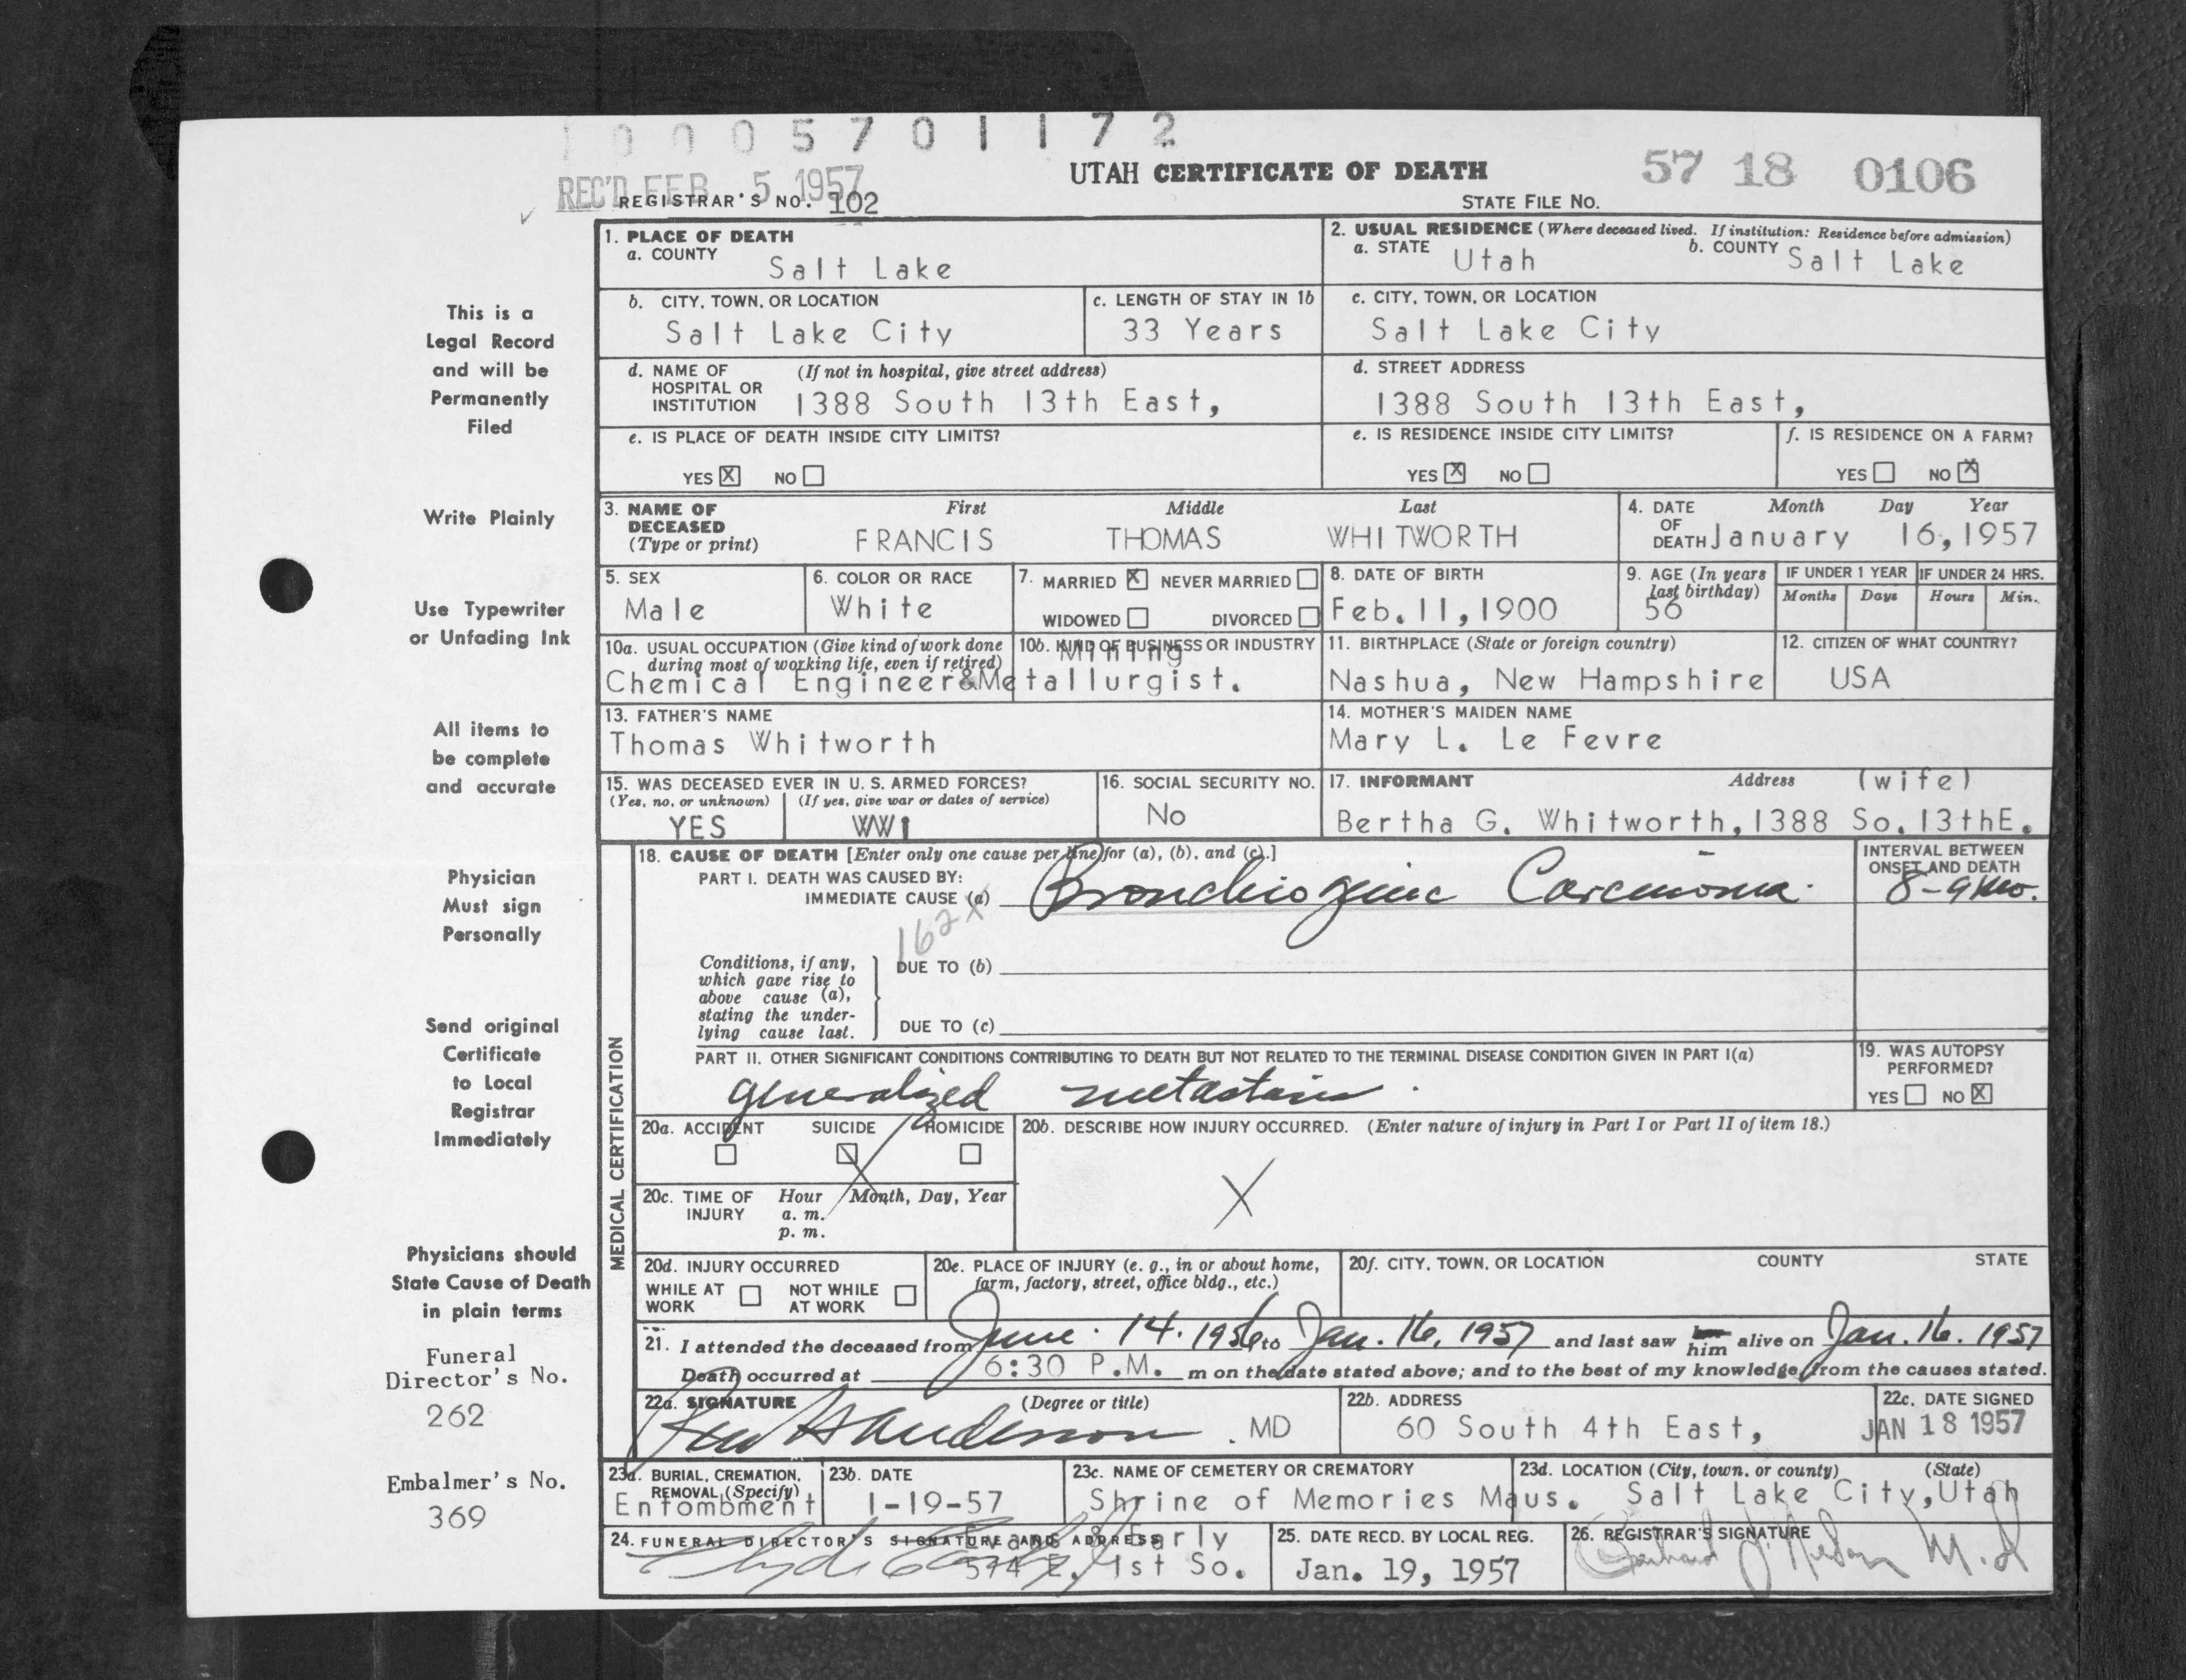 1 0 0 0 5 7 0 1 1 7 2
REC'D FEB 5 1957
UTAH CERTIFICATE OF DEATH
57 18 0106
REGISTRAR'S NO. 102
STATE FILE NO.
1. PLACE OF DEATH
a. COUNTY Salt Lake
2. USUAL RESIDENCE (Where deceased lived. If institution: Residence before admission)
a. STATE Utah b. COUNTY Salt Lake
b. CITY, TOWN, OR LOCATION Salt Lake City
c. LENGTH OF STAY IN 1b 33 Years
c. CITY, TOWN, OR LOCATION Salt Lake City
d. NAME OF HOSPITAL OR INSTITUTION (If not in hospital, give street address) 1388 South 13th East,
d. STREET ADDRESS 1388 South 13th East,
e. IS PLACE OF DEATH INSIDE CITY LIMITS?
YES X NO
e. IS RESIDENCE INSIDE CITY LIMITS?
YES X NO
f. IS RESIDENCE ON A FARM?
YES NO X
3. NAME OF DECEASED (Type or print)
First Middle Last
FRANCIS THOMAS WHITWORTH
4. DATE OF DEATH Month Day Year
January 16, 1957
5. SEX Male
6. COLOR OR RACE White
7. MARRIED X NEVER MARRIED
WIDOWED DIVORCED
8. DATE OF BIRTH Feb. 11, 1900
9. AGE (In years last birthday) 56
IF UNDER 1 YEAR Months Days
IF UNDER 24 HRS. Hours Min.
10a. USUAL OCCUPATION (Give kind of work done during most of working life, even if retired)
Chemical Engineer&Metallurgist.
10b. KIND OF BUSINESS OR INDUSTRY Mining
11. BIRTHPLACE (State or foreign country) Nashua, New Hampshire
12. CITIZEN OF WHAT COUNTRY? USA
13. FATHER'S NAME Thomas Whitworth
14. MOTHER'S MAIDEN NAME Mary L. Le Fevre
15. WAS DECEASED EVER IN U. S. ARMED FORCES?
(Yes, no, or unknown) YES
(If yes, give war or dates of service) WW1
16. SOCIAL SECURITY NO. No
17. INFORMANT Address (wife)
Bertha G. Whitworth, 1388 So. 13thE.
MEDICAL CERTIFICATION
18. CAUSE OF DEATH [Enter only one cause per line for (a), (b), and (c).]
PART I. DEATH WAS CAUSED BY:
IMMEDIATE CAUSE (a) Bronchiogenic Carcinoma.
INTERVAL BETWEEN ONSET AND DEATH
8-9 Mo.
162x
Conditions, if any, which gave rise to above cause (a), stating the underlying cause last.
DUE TO (b)
DUE TO (c)
PART II. OTHER SIGNIFICANT CONDITIONS CONTRIBUTING TO DEATH BUT NOT RELATED TO THE TERMINAL DISEASE CONDITION GIVEN IN PART I(a)
generalized metastasis.
19. WAS AUTOPSY PERFORMED?
YES NO X
20a. ACCIDENT SUICIDE HOMICIDE
20b. DESCRIBE HOW INJURY OCCURRED. (Enter nature of injury in Part I or Part II of item 18.)
X
20c. TIME OF INJURY Hour Month, Day, Year
a. m.
p. m.
20d. INJURY OCCURRED
WHILE AT WORK NOT WHILE AT WORK
20e. PLACE OF INJURY (e. g., in or about home, farm, factory, street, office bldg., etc.)
20f. CITY, TOWN, OR LOCATION COUNTY STATE
21. I attended the deceased from June 14. 1956 to Jan. 16, 1957 and last saw her him alive on Jan. 16. 1957
Death occurred at 6:30 P.M. m on the date stated above; and to the best of my knowledge, from the causes stated.
22a. SIGNATURE (Degree or title)
. MD
22b. ADDRESS 60 South 4th East,
22c. DATE SIGNED JAN 18 1957
23a. BURIAL, CREMATION, REMOVAL (Specify) Entombment
23b. DATE 1-19-57
23c. NAME OF CEMETERY OR CREMATORY Shrine of Memories Maus.
23d. LOCATION (City, town, or county) (State) Salt Lake City, Utah
24. FUNERAL DIRECTOR'S SIGNATURE AND ADDRESS
Evans & Early
574 E. 1st So.
25. DATE RECD. BY LOCAL REG. Jan. 19, 1957
26. REGISTRAR'S SIGNATURE
M.D
This is a
Legal Record
and will be
Permanently
Filed
Write Plainly
Use Typewriter
or Unfading Ink
All items to
be complete
and accurate
Physician
Must sign
Personally
Send original
Certificate
to Local
Registrar
Immediately
Physicians should
State Cause of Death
in plain terms
Funeral
Director's No.
262
Embalmer's No.
369